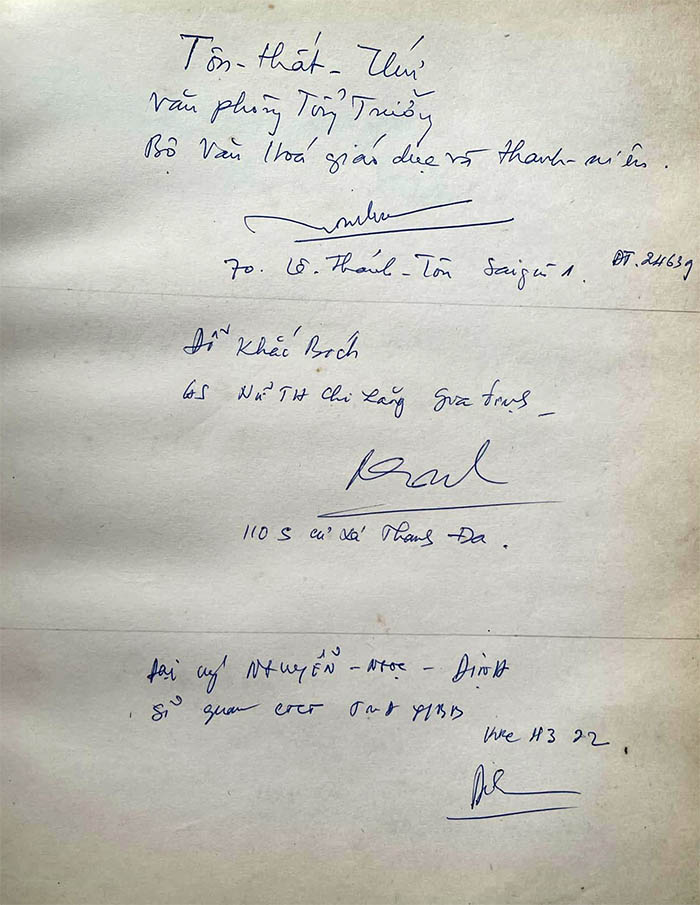 Tôn-thất-Thứ
Văn phòng Tổng Trưởng
Bộ Văn Hoá giáo dục và thanh-niên.
70. Lê-Thánh-Tôn Saigòn 1. ĐT.24639
Đỗ Khắc Bách
GS Nữ TH Chi Lăng Gia Định
110 S cư xá Thanh Đa.
Đại uý NGUYỄN-NGỌC-ĐỊNH
Sĩ quan CTCT
KBC 4322.